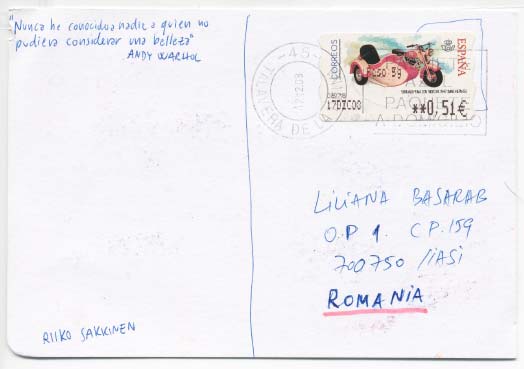 "Nunca he conocido a nadie a quien no
pudiera considerar una belleza"
ANDY WARHOL
CORREOS
ESPAÑA
17DIC08
**0,51€
45
TALAVERA DE LA
17.12.08
PAQ
A DOMICILIO
LILIANA BASARAB
O.P 1. C.P. 159
700750 /IASI
ROMANIA
RIIKO SAKKINEN